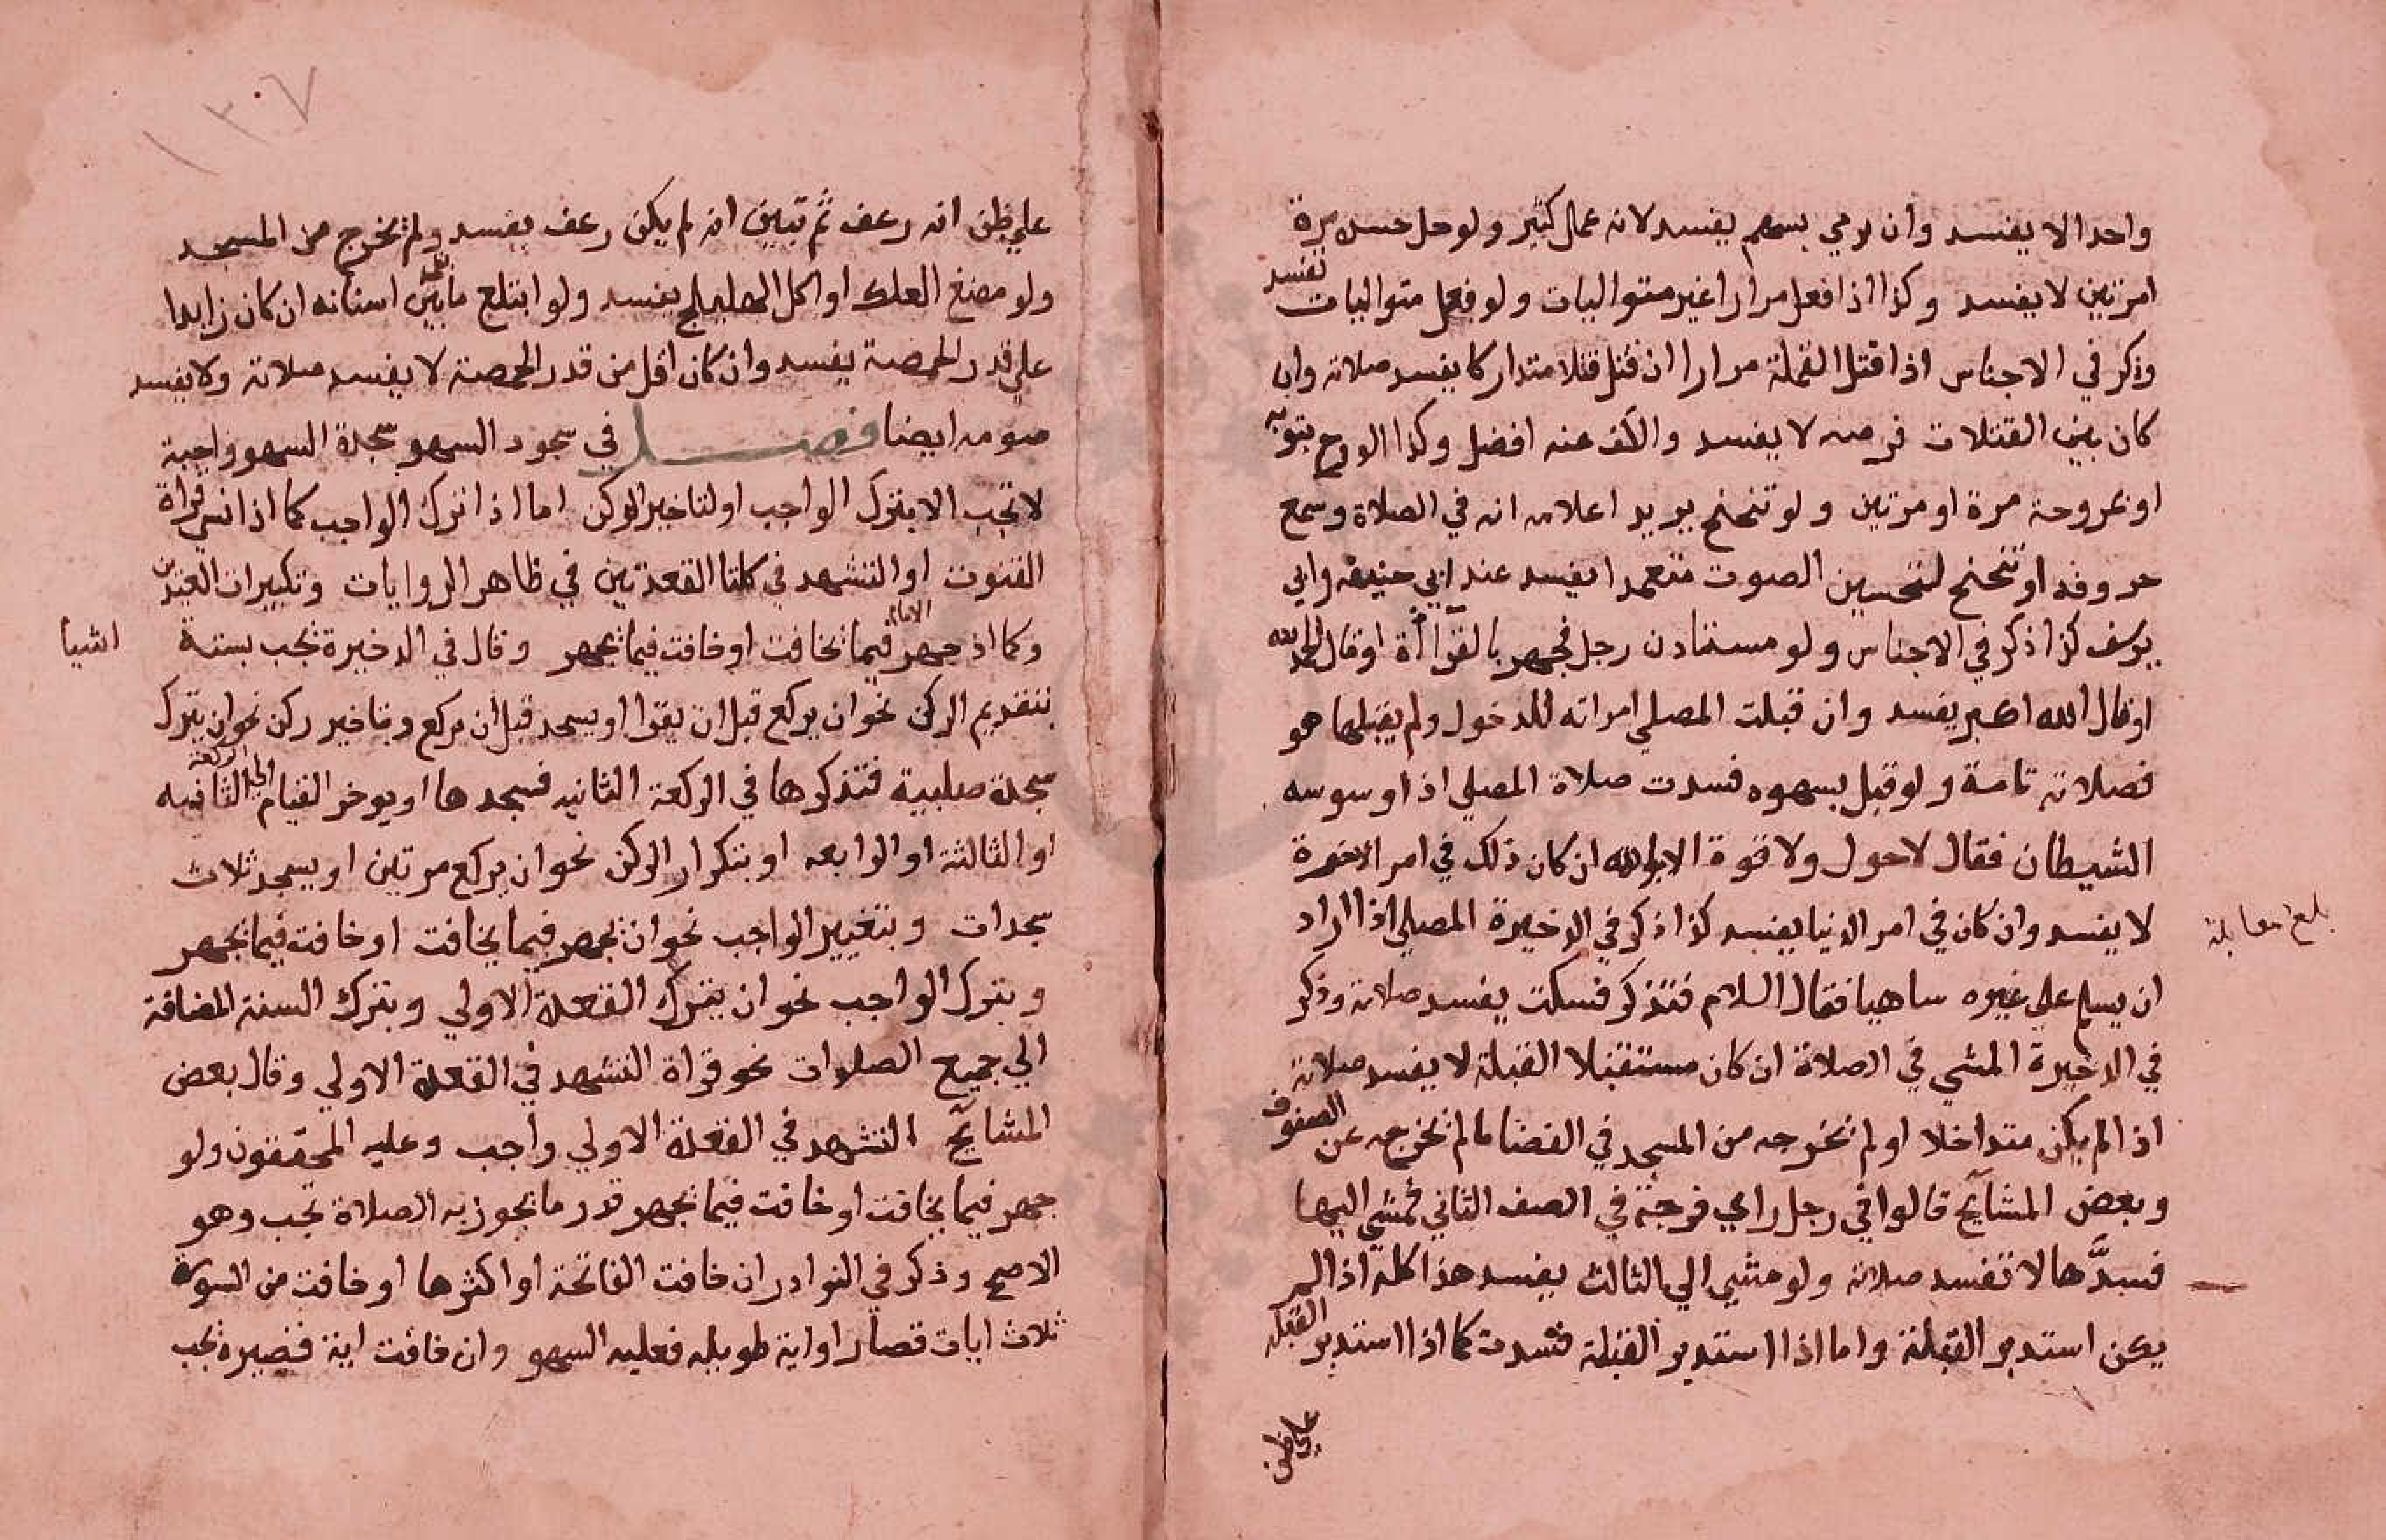 واحدا لا يفسد وان رمي بسهم يفسد لانه عمل كثير ولو حل جسده مرة
او مرتين لا يفسد وكذا اذا فعل مرارا غير متواليات ولو فعل متواليات تفسد
وذكر في الاجناس اذا قتل القملة مرارا ان قتل قتلا متداركا يفسد صلاته وان
كان بين القتلات فرصه لا يفسد والكف عنه افضل وكذا الو روح بثوبه
او بمروحة مرة او مرتين ولو تنحنح يريد اعلامه انه في الصلاة وسمع
حروفه او تنحنح لتحسين الصوت متعمدا يفسد عند ابي حنيفه وابي
يوسف كذا ذكر في الاجناس ولو استاذن رجل فجهر بالقراأة او قال الحمد لله
او قال الله اكبر يفسد وان قبلت المصلي امراته للدخول ولم يقبلها هو
فصلاته تامة ولو قبل بسهوه فسدت صلاة المصلي اذا وسوسه
الشيطان فقال لا حول ولا قوة الا بالله ان كان ذلك في امر الاخرة
لا يفسد وان كان في امر الدنيا يفسد كذا ذكر في الذخيرة المصلي اذا اراد
بلغ مقابلة
ان يسلم علي غيره ساهيا فقال السلام فتذكر فسكت يفسد صلاته وذكر
في الذخيرة المشي في الصلاة ان كان مستقبلا القبلة لا يفسد صلاته
اذا لم يكن متداخلا او لم نخرجه من المسجد في الفضا ما لم نخرجه عن الصفوف
وبعض المشايخ قالوا في رجل راي فرجة في الصف الثاني فمشي اليها
فسدها لا تفسد صلاته ولو مشي الي الثالث يفسد هذا كله اذا لم
يكن استدبر القبلة واما اذا استدبر القبلة فسدت كما اذا استدبر القبلة
علي ظن
١٣٠٧
علي ظن انه رعف ثم تبين انه لم يكن رعف يفسد ولم يخرج من المسجد
ولو مضغ العلك او اكل الهليلج يفسد ولو ابتلع ما بين اسنانه ان كان زايدا
علي قدر الحمصة يفسد وان كان اقل من قدر الحمصة لا يفسد صلاته ولا يفسد
صومه ايضا فصل في سجود السهو سجدة السهو واجبة
لا تجب الا بترك الواجب او لتاخير الركن اما اذا ترك الواجب كما اذا نسي قراة
القنوت او التشهد في كلتا القعدتين في ظاهر الروايات وتكبيرات العيدين
وكما اذ جهر الامام فيما يخافت او خافت فيما يجهر وقال في الذخيرة تجب بستة اشيا
بتقديم الركن نحو ان يركع قبل ان يقرا او يسجد قبل ان يركع وبتاخير ركن نحو ان يترك
سجدة صلبية فتذكرها في الركعة الثانيه فسجدها او يوخر القيام الي الركعة الثانيه
او الثالثة او الرابعه او بتكرار الركن نحو ان يركع مرتين او يسجد ثلاث
سجدات وبتغيير الواجب نحو ان يجهر فيما يخافت او خافت فيما يجهر
وبترك الواجب نحو ان يترك القعدة الاولي وبترك السنة المضافة
الي جميع الصلوات نحو قراة التشهد في القعدة الاولي وقال بعض
المشايخ التشهد في القعدة الاولي واجب وعليه المحققون ولو
جهر فيما يخافت او خافت فيما يجهر قدر ما تجوز به الصلاة تجب وهو
الاصح وذكر في النوادر ان خافت الفاتحة او اكثرها او خافت من السورة
ثلاث ايات قصار او اية طويله فعليه السهو وان خافت اية قصيره تجب